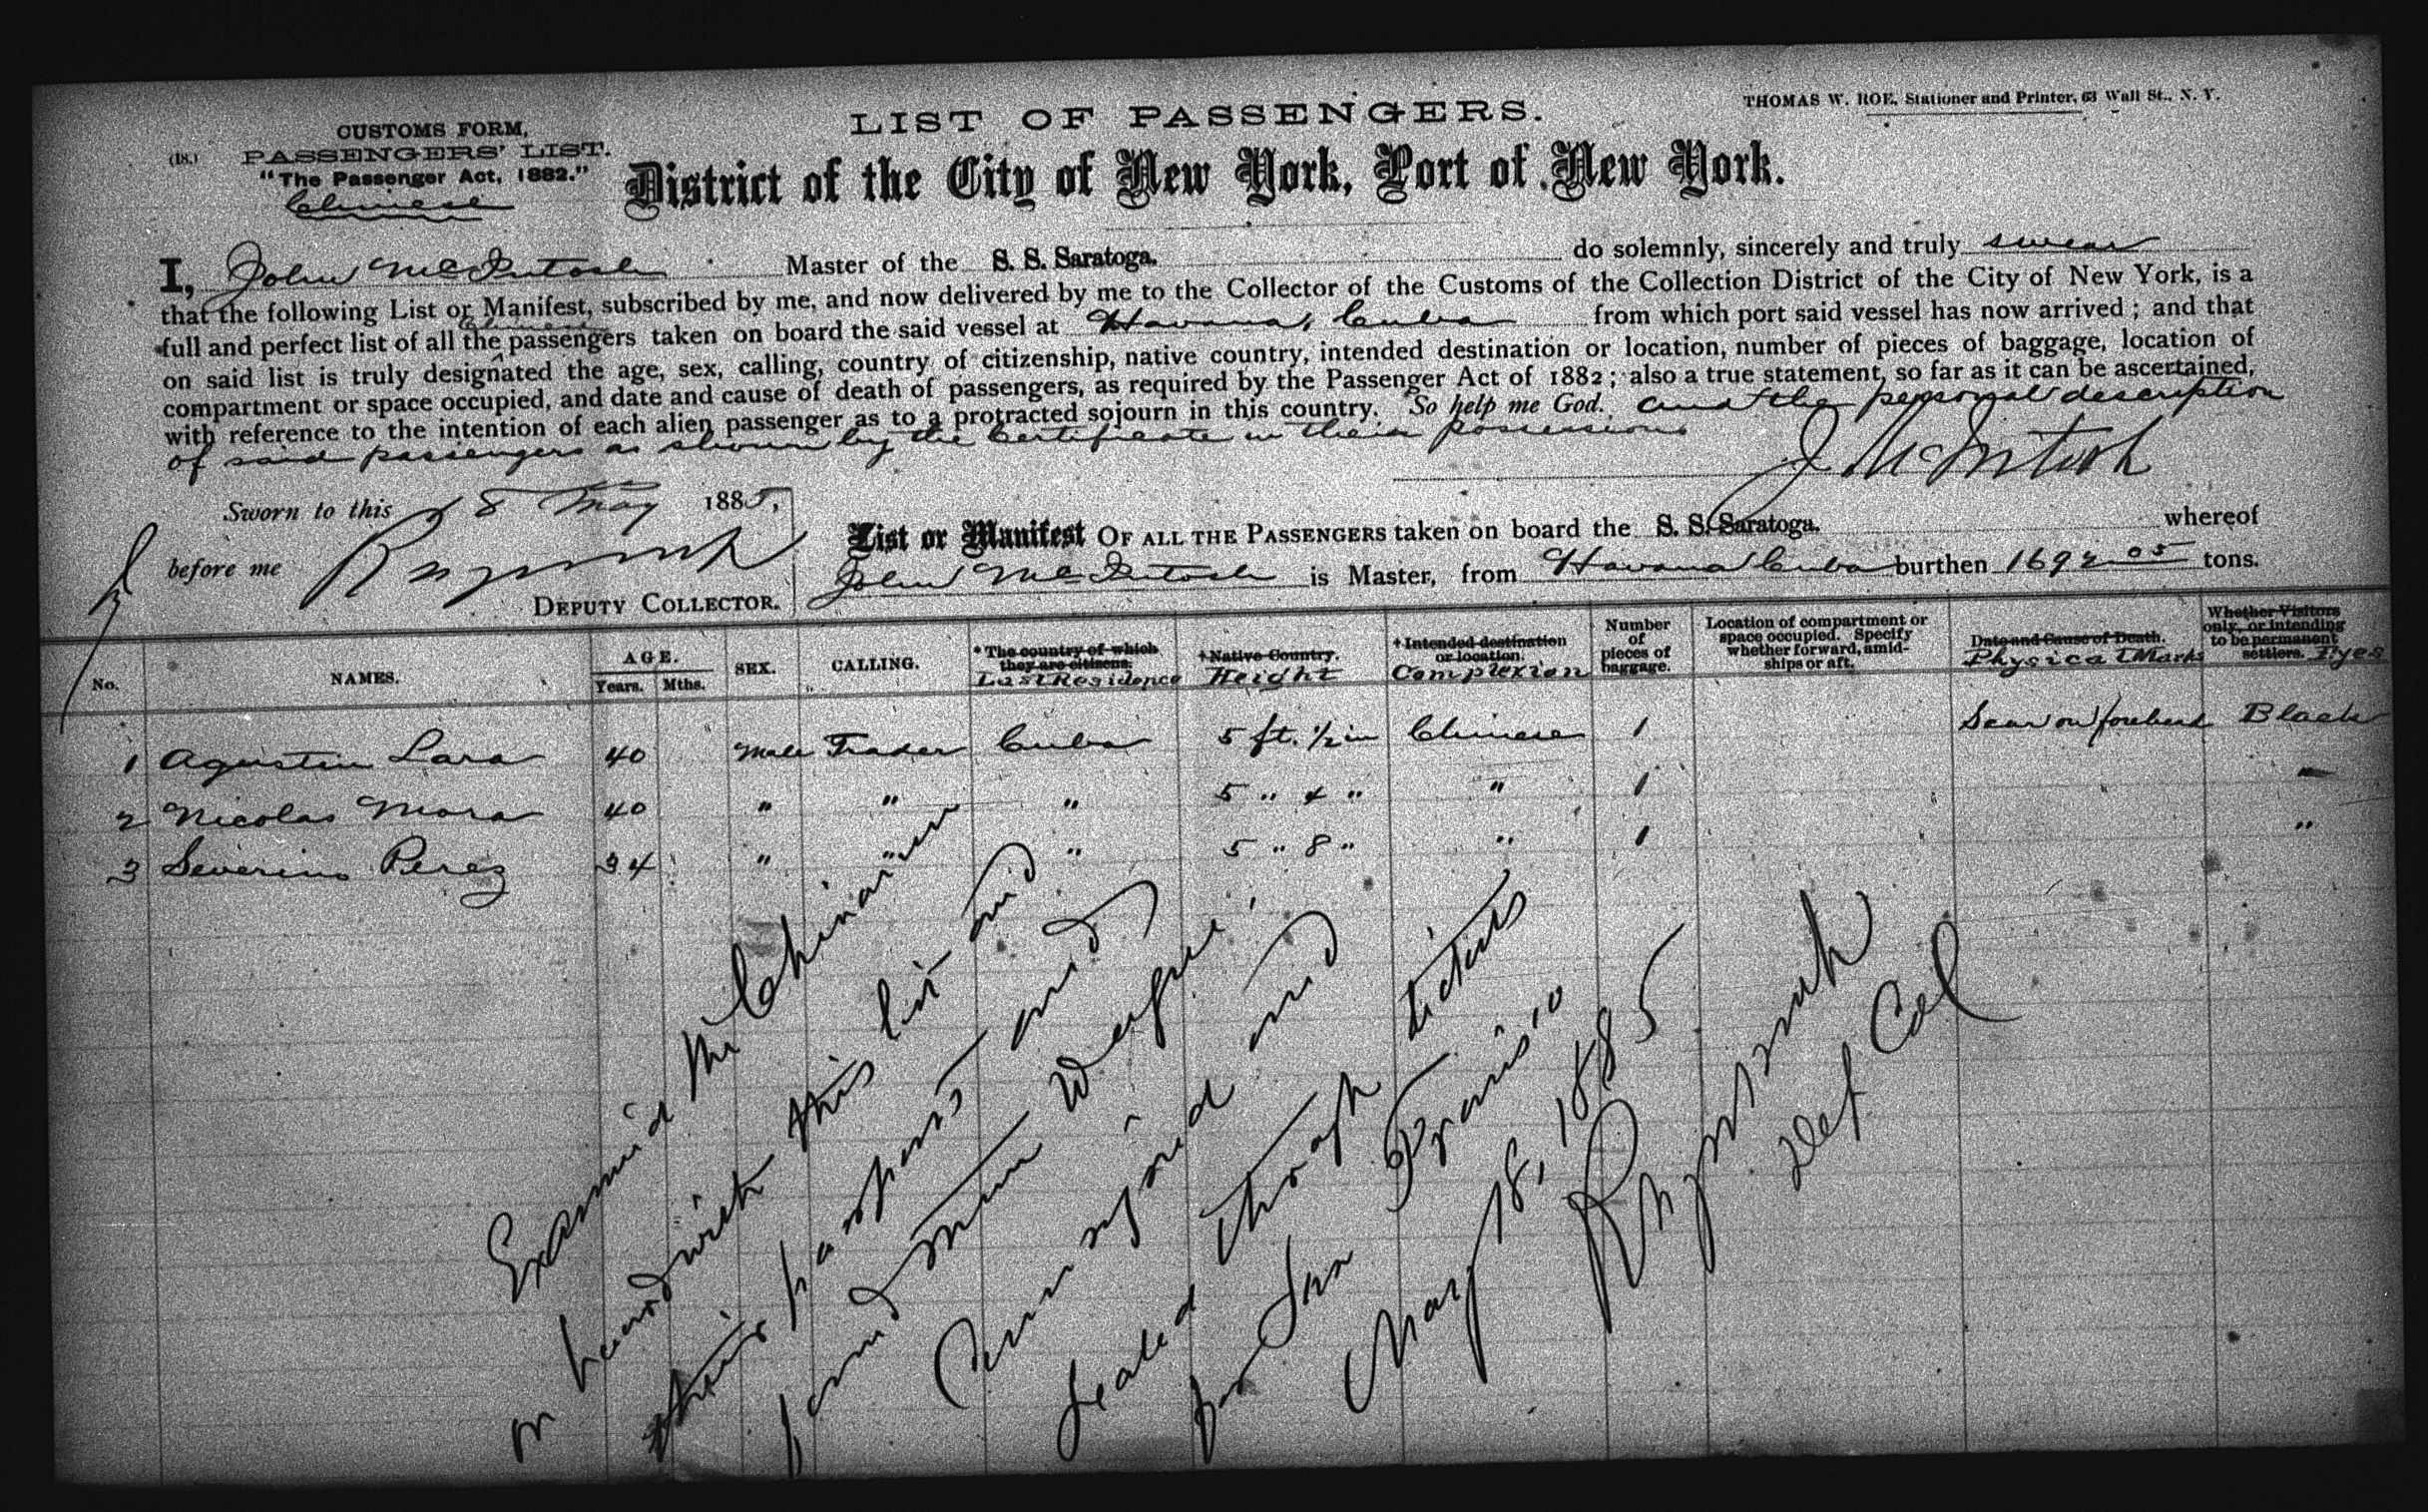 THOMAS W. ROE, Stationer and Printer, 63 Wall St., N. Y.
LIST OF PASSENGERS.
CUSTOMS FORM,
(18.) PASSENGERS' LIST.
"The Passenger Act, 1882."
Chinese
District of the City of New York, Port of New York.
I, John McIntosh Master of the S. S. Saratoga. do solemnly, sincerely and truly swear
that the following List or Manifest, subscribed by me, and now delivered by me to the Collector of the Customs of the Collection District of the City of New York, is a
Chinese
full and perfect list of all the passengers taken on board the said vessel at Havana, Cuba from which port said vessel has now arrived; and that
on said list is truly designated the age, sex, calling, country of citizenship, native country, intended destination or location, number of pieces of baggage, location of
compartment or space occupied, and date and cause of death of passengers, as required by the Passenger Act of 1882; also a true statement, so far as it can be ascertained,
with reference to the intention of each alien passenger as to a protracted sojourn in this country. So help me God. and the personal description
of said passengers as shown by the Certificate in their possession
J McIntosh
Sworn to this 18 May 1885,
before me
DEPUTY COLLECTOR.
List or Manifest OF ALL THE PASSENGERS taken on board the S. S. Saratoga. whereof
John McIntosh is Master, from Havana Cuba burthen 1692 05 tons.
No. NAMES. AGE. Years. Mths. SEX. CALLING. *The country of which they are citizens. Last Residence †Native Country. Height ‡Intended destination or location. Complexion Number of pieces of baggage. Location of compartment or space occupied. Specify whether forward, amidships or aft. Date and Cause of Death. Physical Marks Whether Visitors only, or intending to be permanent settlers. Eyes
1 Agustin Lara 40 Male Trader Cuba 5 ft. 1/2 in Chinese 1 Scar on forehead Black
2 Nicolas Mora 40 " " " 5 " 4 " " 1 "
3 Severino Perez 34 " " " 5 " 8 " " 1 "
Examined the Chinamen
on board with this list and
their passports and
found them
Communicated and
sealed through tickets
for San Francisco
May 18, 1885
Dep Col